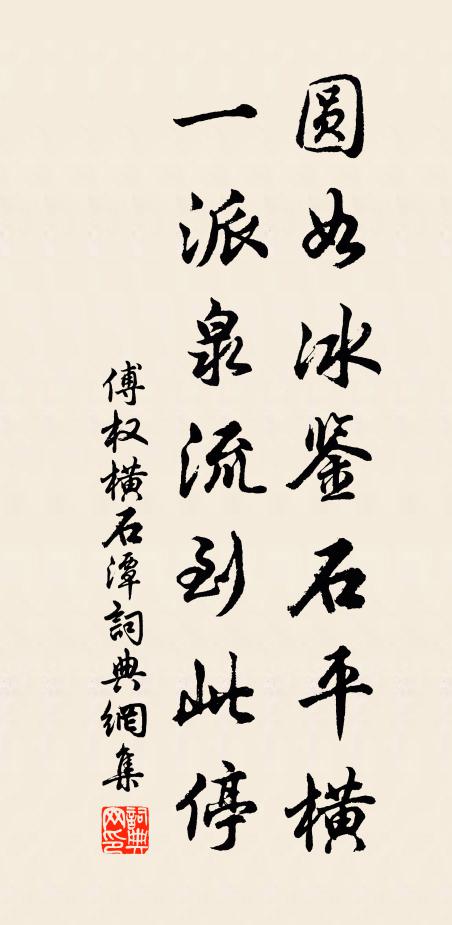 圆如冰鉴石平横
一派泉流到此停
傅权横石潭詞典網集
詞典网印